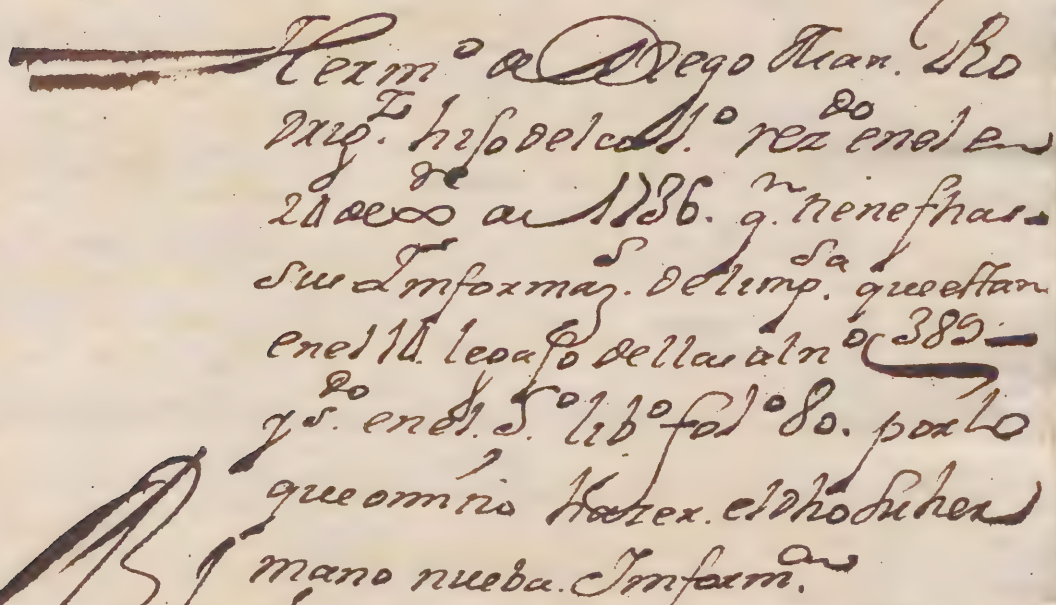 Herm.º de Diego Man. Ro
drig.z hijo del col.º rez.do en el en
24 de 8.re de 1736. q.n tiene fhas
sus Informaz.s de limp.sa que estan
en el 14. legajo dellas al nº 389
y s.do en el 5.º lib.º fol.º 80. por lo
que omitio hazer. el dho su her
mano nueba. Inform.on